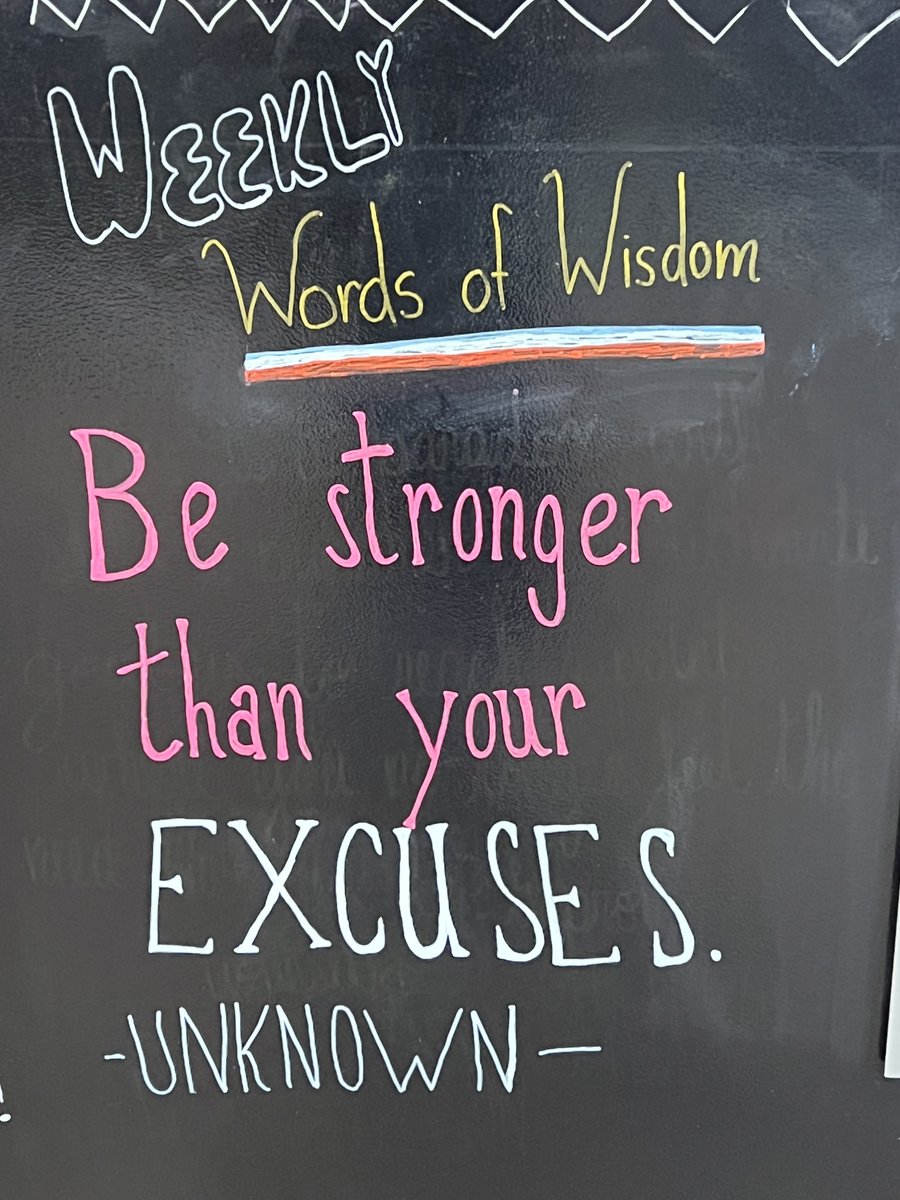 WEEKLY
Words of Wisdom
Be stronger
than your
EXCUSES.
-UNKNOWN-